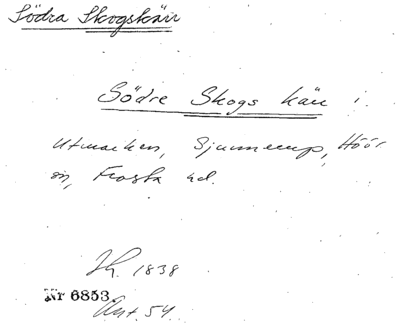 Södra Skogskärr
Södre Skogs kärr i
utmarken, Sjunnerup, Höör
sn, Frosta hd.
1838
Nr 6853
Ant. 54